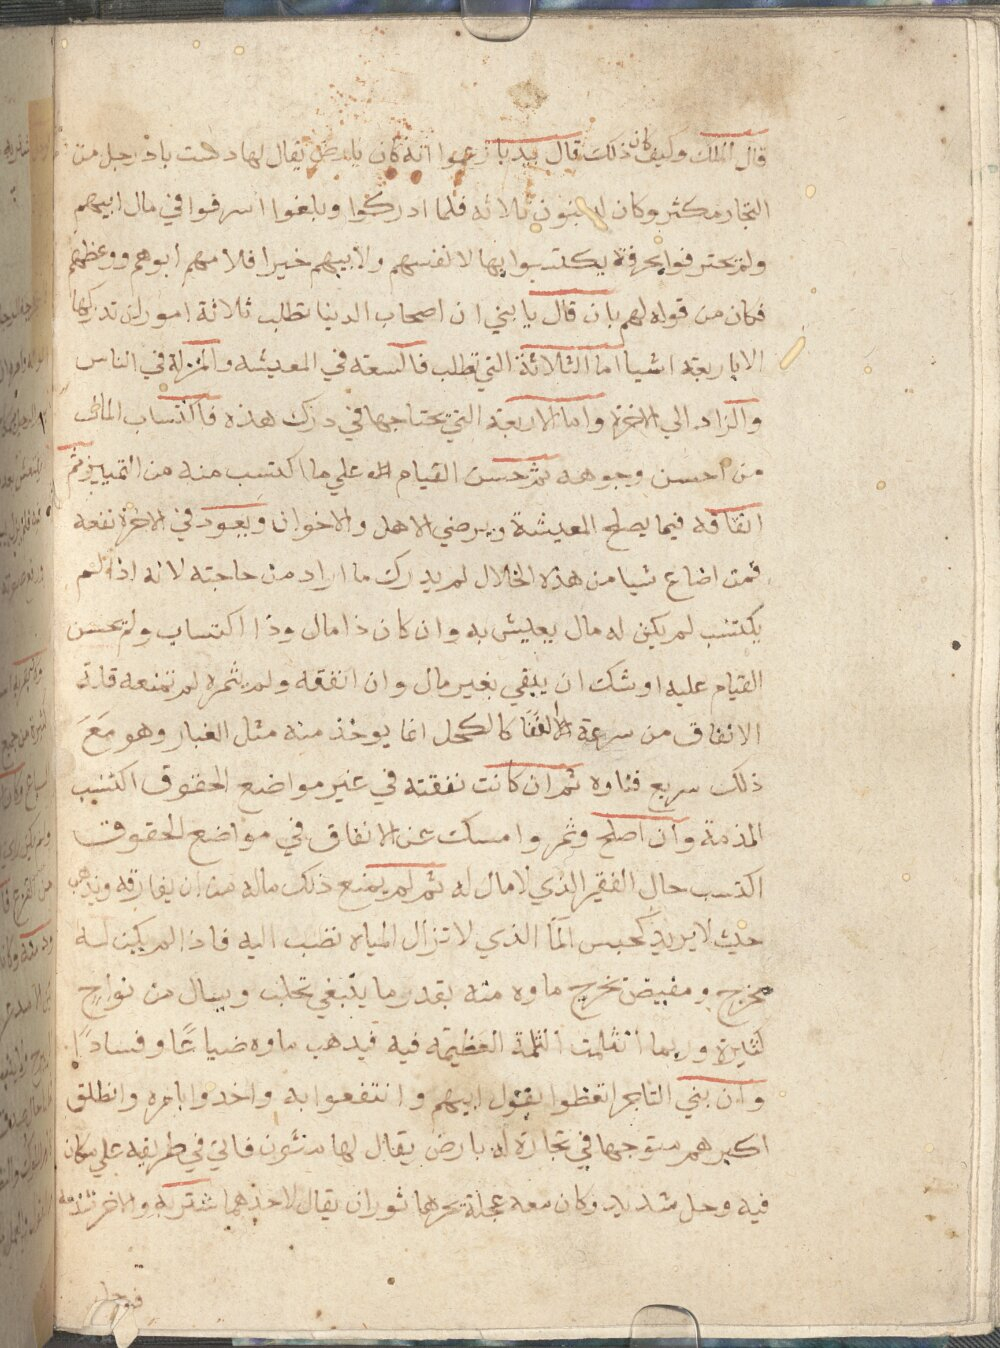 قال الملك وكيف كان ذلك قال بيدبا زعموا انه كان بارض يقال لها دستباد رجل من
التجار مكثر وكان له بنون ثلاثه فلما ادركوا وبلغوا اسرفوا في مال ابيهم
ولم يحترفوا بحرفة يكتسبوا بها لانفسهم ولابيهم خيرا فلامهم ابوهم ووعظهم
فكان من قوله لهم بان قال يا بني ان اصحاب الدنيا تطلب ثلاثة امور لن تدركها
الا باربعة اشيا اما الثلاثة التي تطلب فالسعه في المعيشه والمنزلة في الناس
والزاد الي الاخرة واما الاربعة التي تحتاجها في درك هذه فاكتساب المال
من احسن وجوهه ثم حسن القيام علي ما اكتسب منه من التمييز ثم
انفاقه فيما يصلح المعيشة ويرضي الاهل والاخوان ويعود في الاخرة نفعه
فمن اضاع شيا من هذه الخلال لم يدرك ما اراد من حاجته لانه اذا لم
يكتسب لم يكن له مال يعيش به وان كان ذا مال وذا اكتساب ولم يحسن
القيام عليه اوشك ان يبقي بغير مال وان انفقه ولم يثمره لم تمنعه قلة
الانفاق من سرعة الفنا كالكحل انما يوخذ منه مثل الغبار وهو مع
ذلك سريع فناوه ثم ان كانت نفقته في غير مواضع الحقوق اكتسب
المذمة وان اصلح وثمر وامسك عن الانفاق في مواضع الحقوق
اكتسب حال الفقير الذي لا مال له ثم لم يمنع ذلك ماله من ان يفارقه ويذهب
حيث لا يريد كحبس المآ الذي لا تزال المياه تصب اليه فاذا لم يكن له
مخرج ومفيض تخرج ماوه منه بقدر ما ينبغي تحلب وسال من نواح
كثيرة وربما انثلمت الثلمة العظيمه فيه فيذهب ماوه ضياعًا وفسادًا
وان بني التاجر اتعظوا بقول ابيهم وانتفعوا به واخدوا بامره وانطلق
اكبرهم متوجها في تجارة له بارض يقال لها مثون فاتي في طريقه علي مكان
فيه وحل شديد وكان معه عجلة يجرها ثوران يقال لاحدهما شتربه والاخر بندبه
فوحل